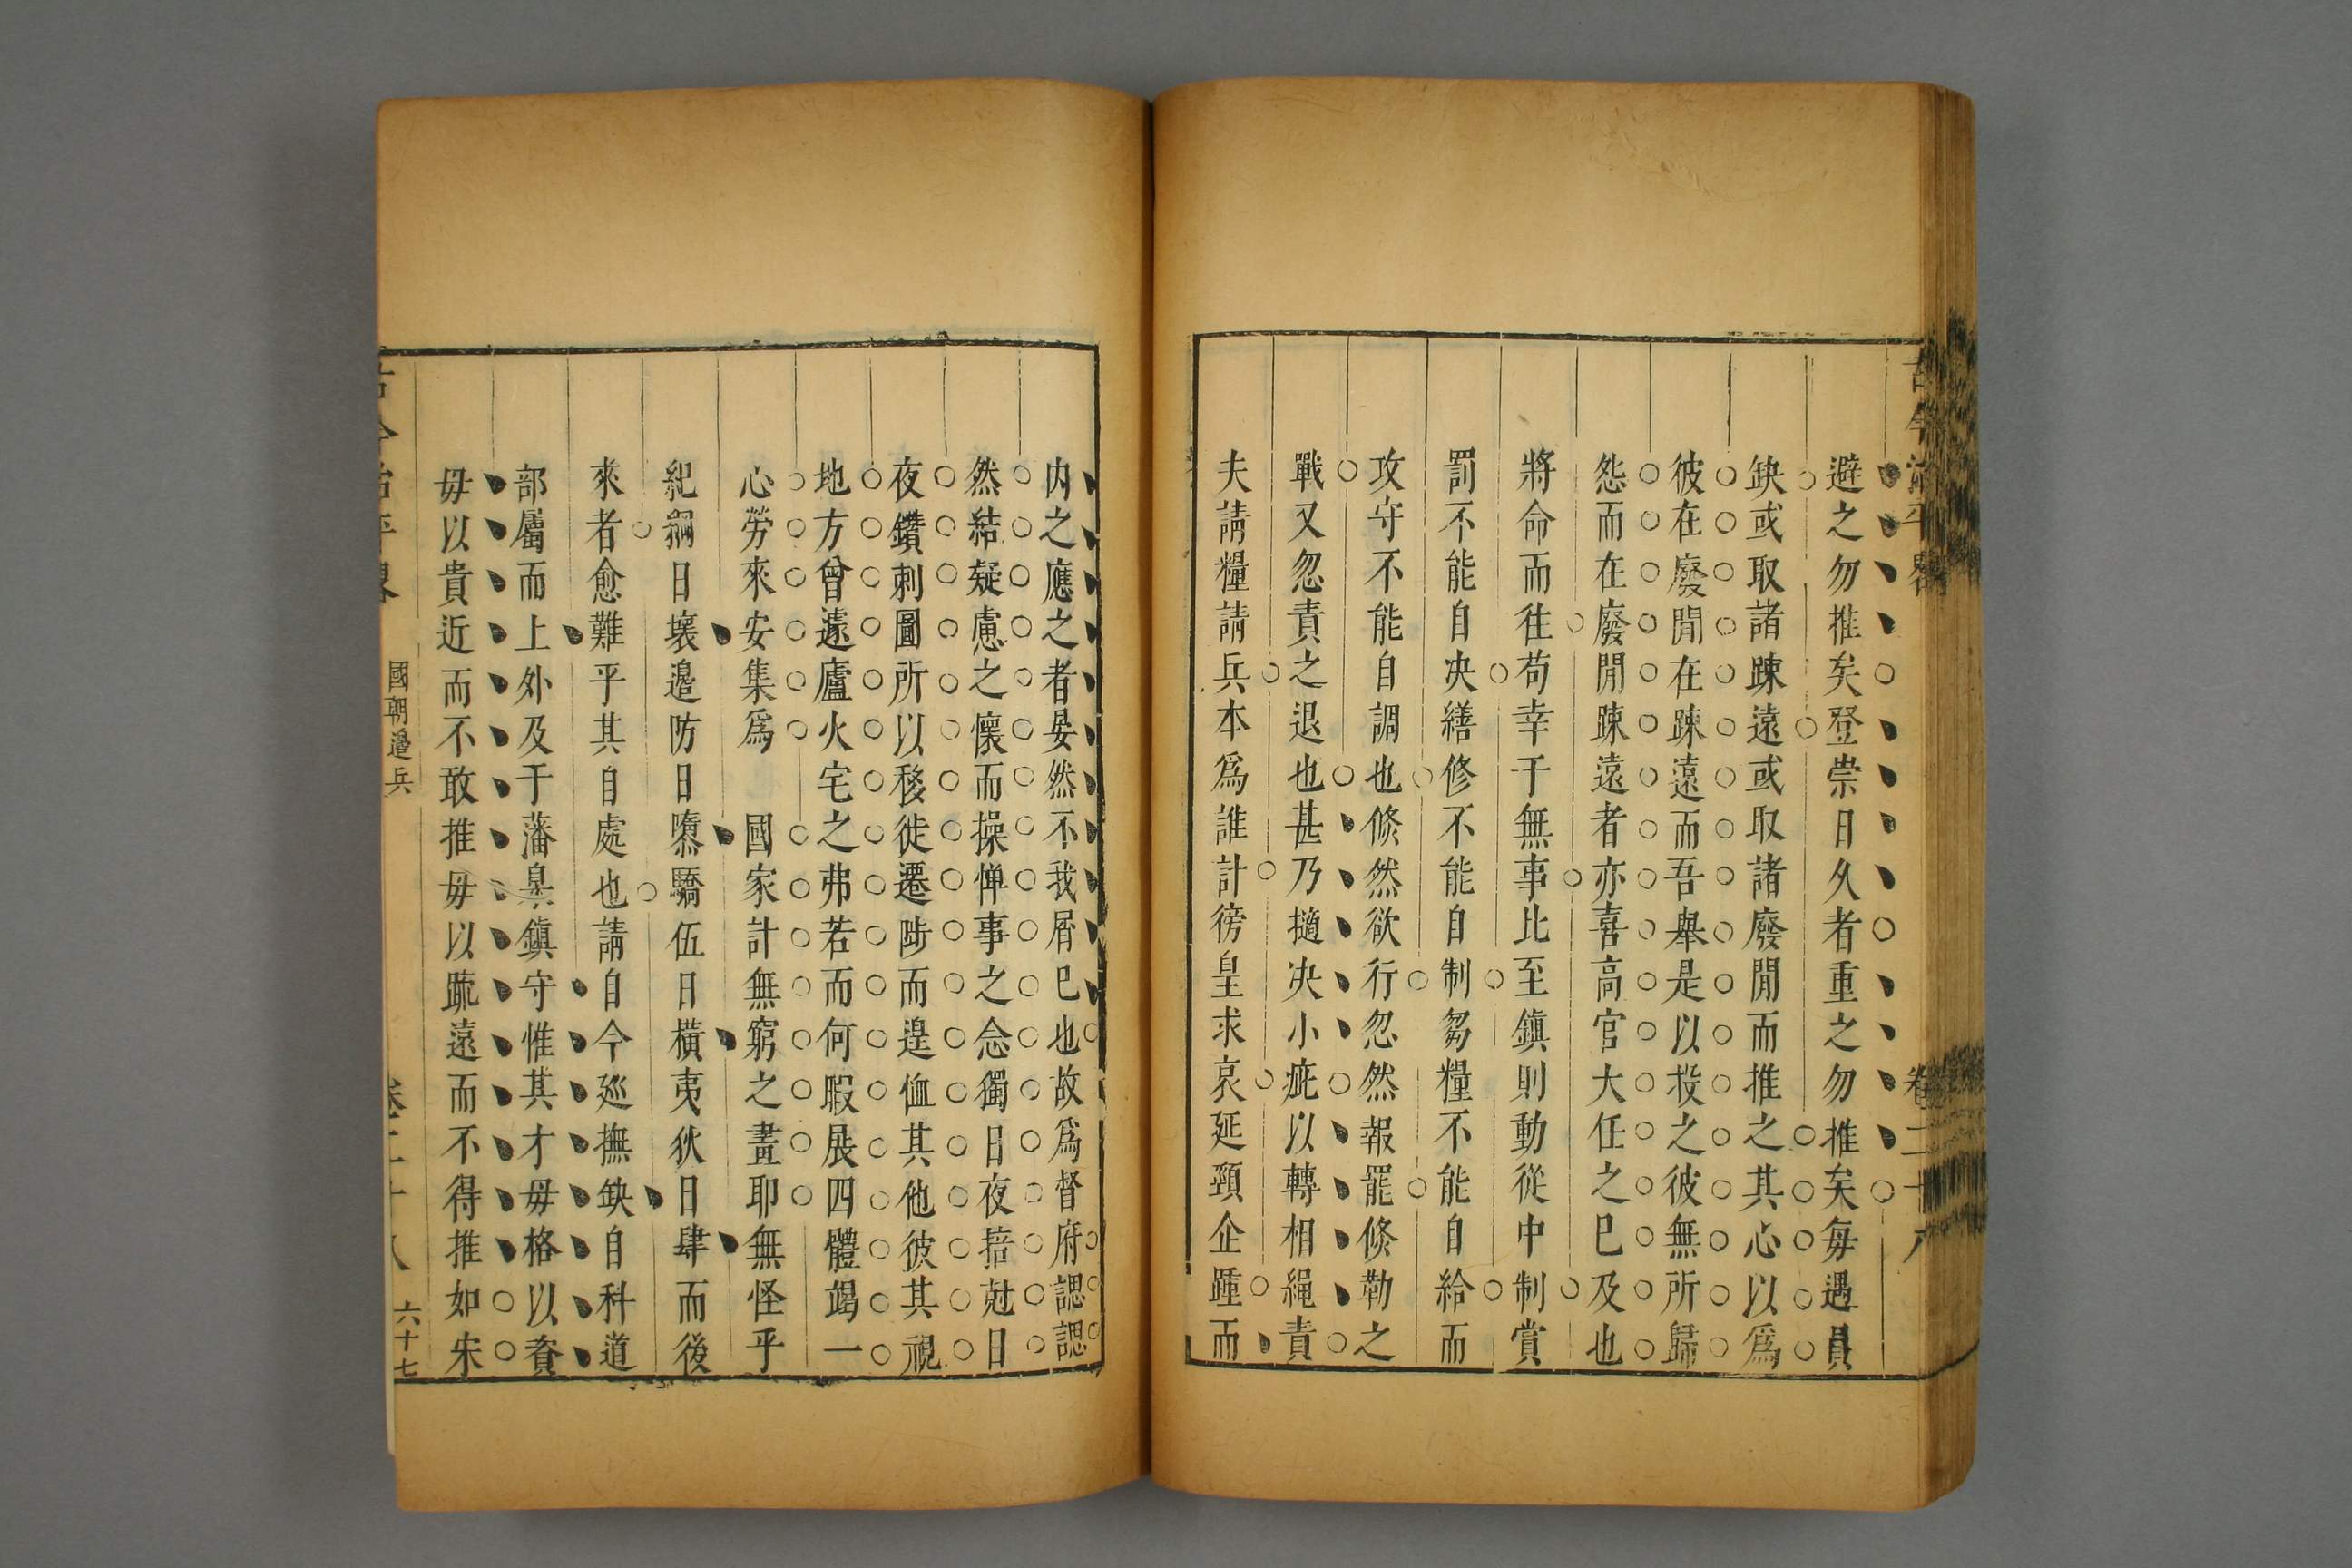 古今治平畧 卷二十八
避之勿推矣登崇日久者重之勿推矣每遇員
缺或取諸踈遠或取諸廢閒而推之其心以爲
彼在廢閒在踈遠而吾舉是以投之彼無所歸
怨而在廢閒踈遠者亦喜高官大任之巳及也
將命而往苟幸于無事比至鎭則動從中制賞
罰不能自决繕修不能自制芻糧不能自給而
攻守不能自調也倏然欲行忽然報罷倏勒之
戰又忽責之退也甚乃擿决小疵以轉相繩責
夫請糧請兵本爲誰計徬皇求哀延頸企踵而
内之應之者晏然不我屑巳也故爲督府諰諰
然結疑慮之懷而操惮事之念獨日夜掊尅日
夜鑽刺圖所以移徙遷陟而遑恤其他彼其視
地方曾蘧廬火宅之弗若而何暇展四體竭一
心勞來安集爲 國家計無窮之畫耶無怪乎
紀綱日壞邉防日隳驕伍日橫夷狄日肆而後
來者愈難乎其自處也請自今廵撫缺自科道
部屬而上外及于藩臬鎭守惟其才毋格以資
毋以貴近而不敢推毋以䟽遠而不得推如宋
古今治平畧 國朝邉兵 卷二十八 六十七